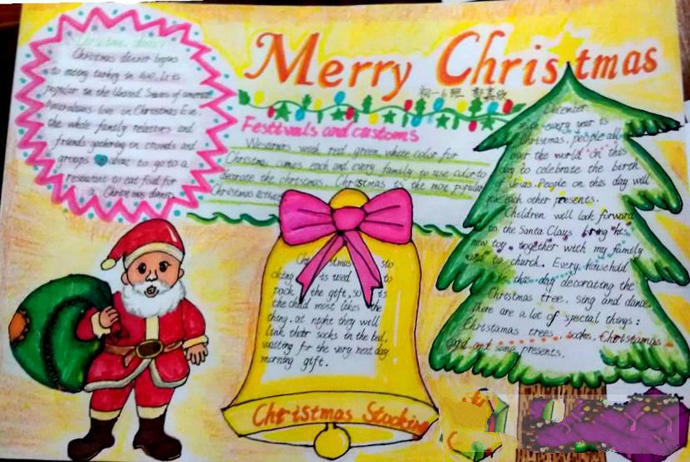 Merry Christmas
初一6班
Christmas dinner
Christmas dinner begins
to menu turkey in 1620. It is
popular in the United States of america
Americans live on Christmas Eve.
the whole family relatives and
friends gathering in crowds and
groups want to go to a
restaurant to eat food for
a Christmas dinner.
Festivals and customs
Westerners wish red green white color for
Christmas comes each and every family to use color to
decorate the christmas. Christmas is the most popular
Christmas
Christmas sto
cking is used to
pack the gift, so is
the child most likes the
thing. at night they will
link their socks in the bed,
waiting for the very next day
morning gift.
Christmas Stocking
December
every year is
Christmas, people all
over the world on this
day to celebrate the birth
People on this day will
each other presents.
Children will look forward
to the Santa Claus bring his
new toy. together with my family
to church. Every household
this day decorating the
Christmas tree. sing and dance.
There are a lot of special things:
Christamas trees socks Christamas
and presents.